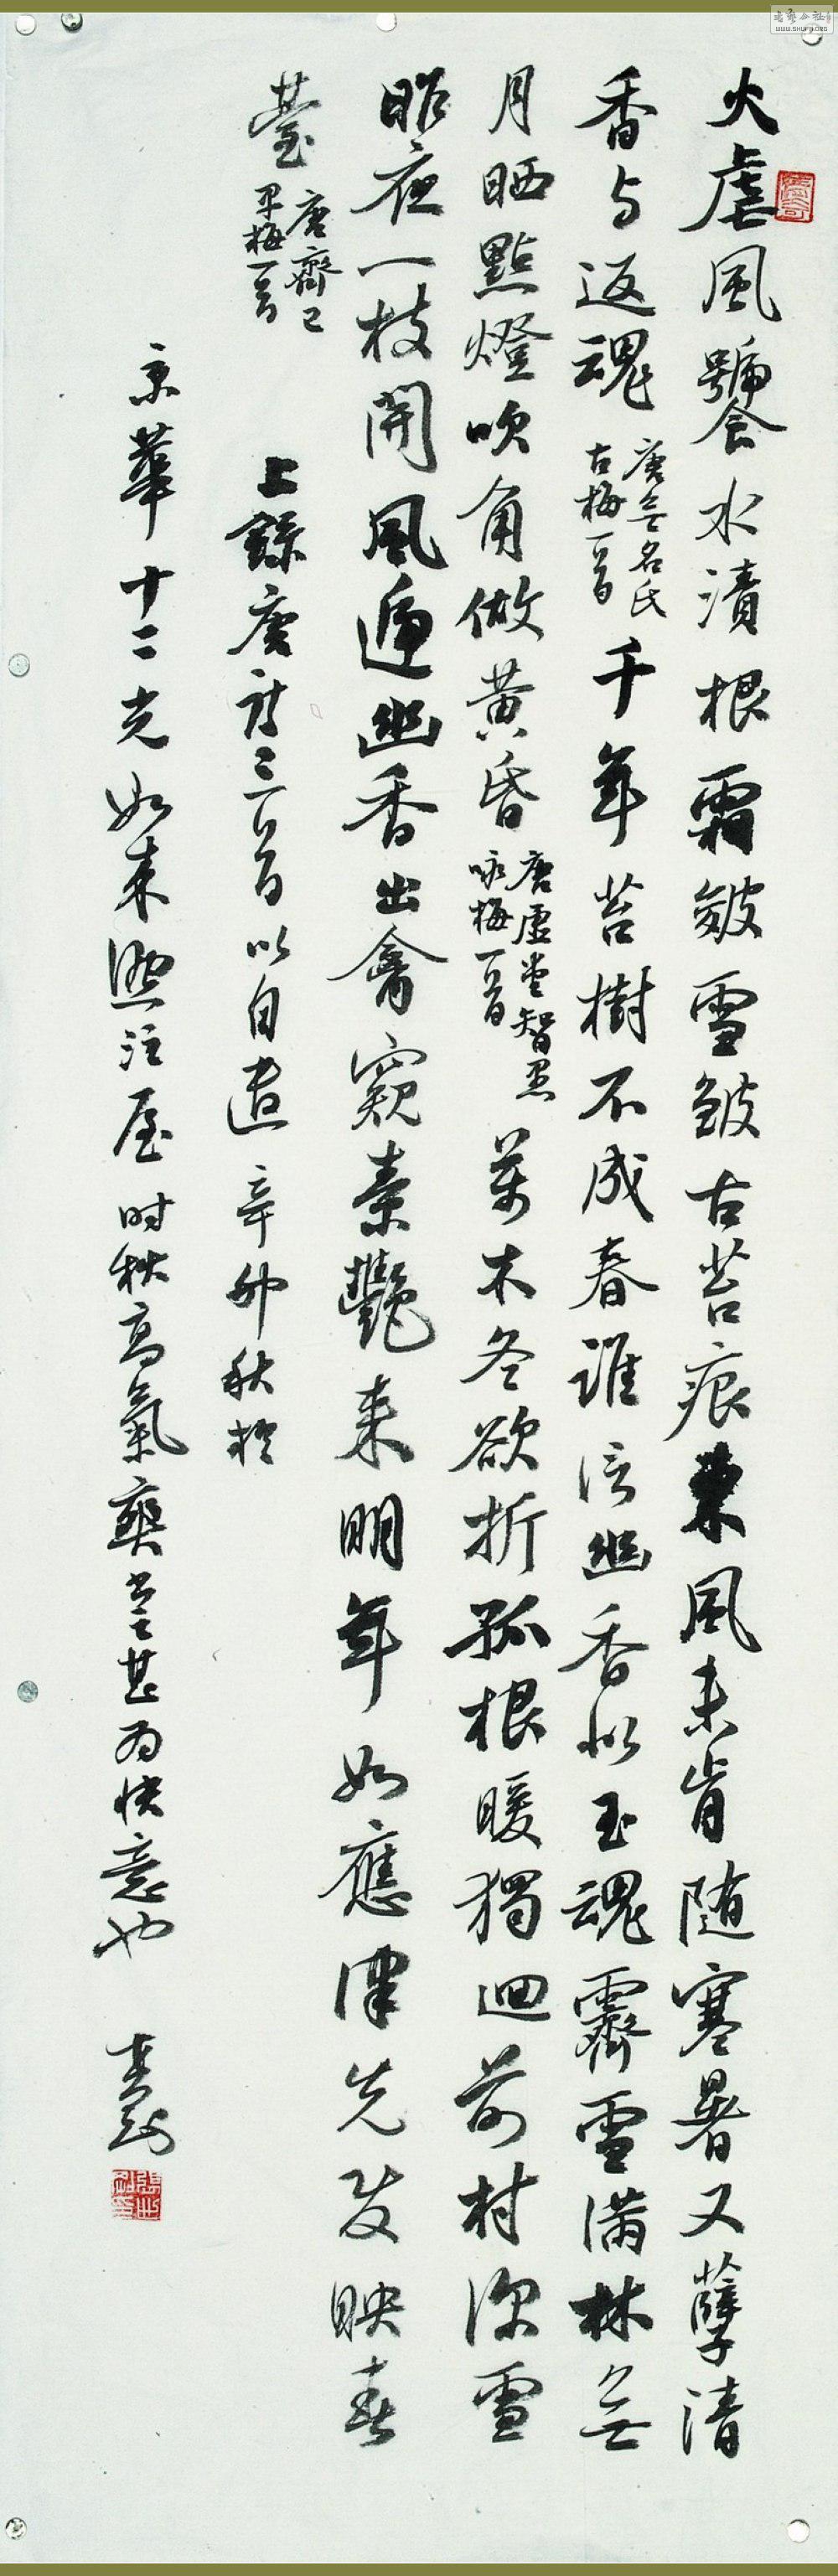 火虐風饕水漬根霜皴雪皴古苔痕東風未肯随寒暑又孽清
香与返魂
唐無名氏
古梅一首
千年苔樹不成春誰信幽香似玉魂霽雪滿林無
月晒點燈吹角做黄昏
唐虛堂智愚
咏梅一首
萬木冬欲折孤根暖獨迴前村深雪
昨夜一枝開風遞幽香出禽窺素艷来明年如應律先发映春
臺
唐齊己
早梅一首
上錄唐詩三首以自遣辛卯秋於
京華十二光如来照注屋时秋高氣爽書甚为快意也
WWW.SHUFJ.ORG